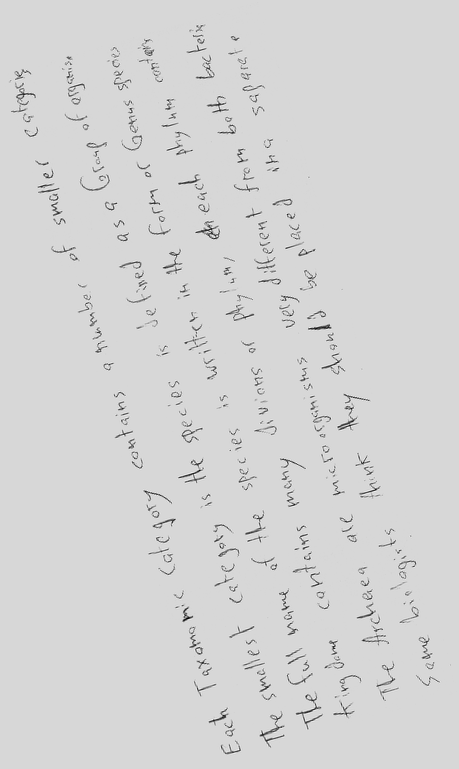 Each Taxomomic category contains a number of smaller categoris
The smallest category is the species is defined as a Group of organism
The full mame of the species is written in the form of Genus species
king dame contains many divions or phylum, each phylum contain
The Archaea are microorganistus very different from both bacteria
Same biologists think they should be placed in a saparate